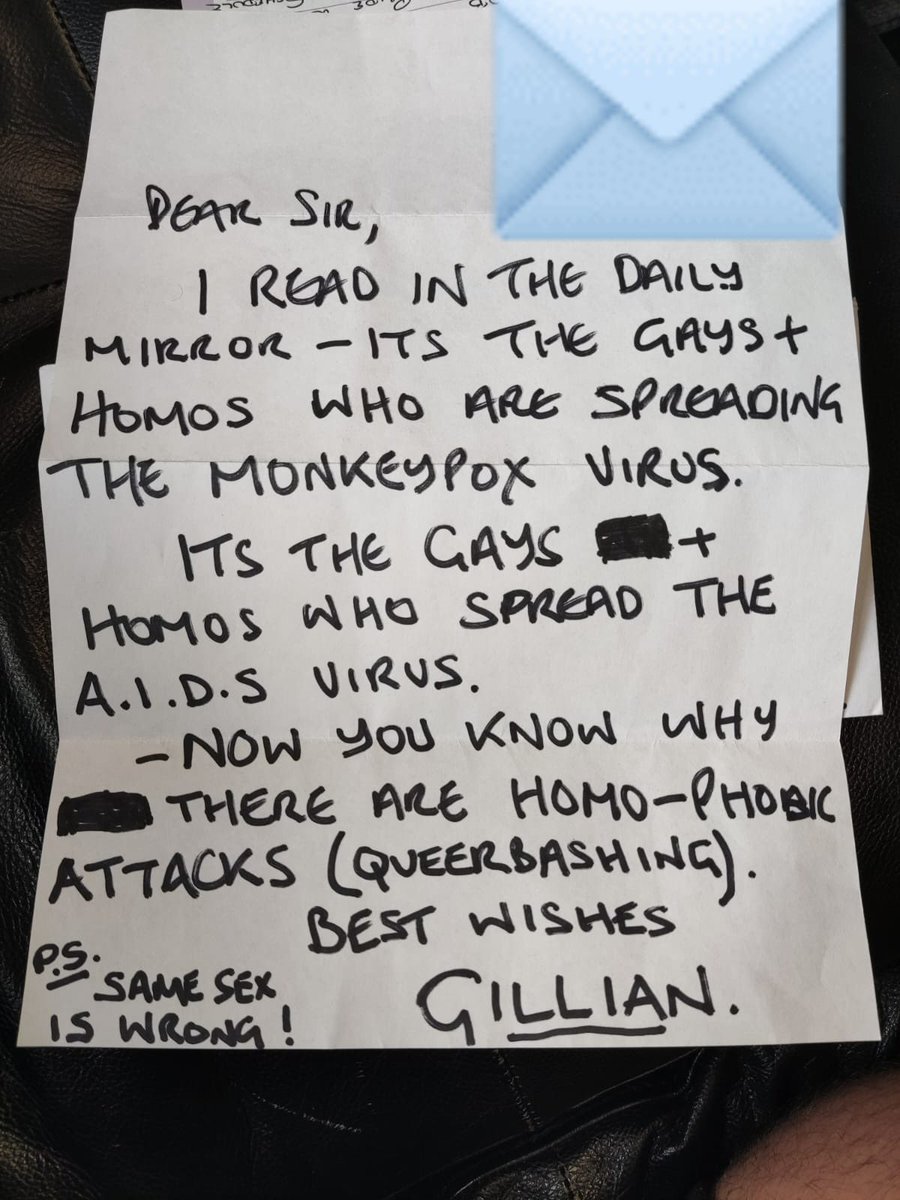 DEAR SIR,
I READ IN THE DAILY
MIRROR - ITS THE GAYS +
HOMOS WHO ARE SPREADING
THE MONKEYPOX VIRUS.
ITS THE GAYS +
HOMOS WHO SPREAD THE
A.I.D.S VIRUS.
- NOW YOU KNOW WHY
THERE ARE HOMO-PHOBIC
ATTACKS (QUEERBASHING).
BEST WISHES
GILLIAN.
P.S.
SAME SEX
IS WRONG!